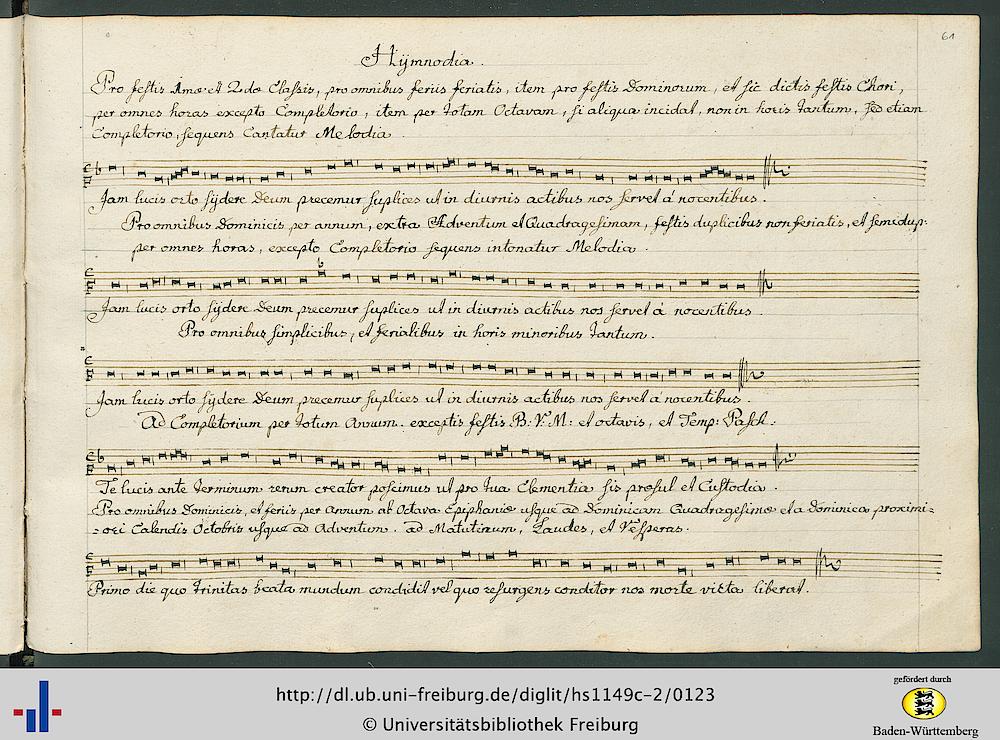 61
Hÿmnodia.
Pro festis 1mæ et 2dæ Classis, pro omnibus feriis feriatis, item pro festis Dominorum, et sic dictis festis Chori,
per omnes horas excepto Completorio, item per totam Octavam, si aliqua incidat, non in horis tantum, sed etiam
Completorio, sequens Cantatur Melodia.
Jam lucis orto sÿdere Deum precemur suplices ut in diurnis actibus nos servet á nocentibus.
Pro omnibus Dominicis per annum, extra Adventum et Quadragesimam, festis duplicibus non feriatis, et semidup:
per omnes horas, excepto Completorio sequens intonatur Melodia.
Jam lucis orto sÿdere Deum precemur suplices ut in diurnis actibus nos servet á nocentibus.
Pro omnibus simplicibus, et ferialibus in horis minoribus tantum.
Jam lucis orto sÿdere Deum precemur suplices ut in diurnis actibus nos servet a nocentibus.
Ad Completorium per totum Annum. exceptis festis B: V: M: et octavis, et Temp: Pasch:
Te lucis ante terminum rerum creator poscimus ut pro tua Clementia sis præsul et Custodia.
Pro omnibus Dominicis, et feriis per Annum ab Octava Epiphaniæ usque ad Dominicam Quadragesimæ et a Dominica proximi=
=ori Calendis Octobris usque ad Adventum. ad Matutinum, Laudes, et Vesperas.
Primo die quo trinitas beata mundum condidit vel quo resurgens conditor nos morte victa liberat.
http://dl.ub.uni-freiburg.de/diglit/hs1149c-2/0123
© Universitätsbibliothek Freiburg
gefördert durch
Baden-Württemberg